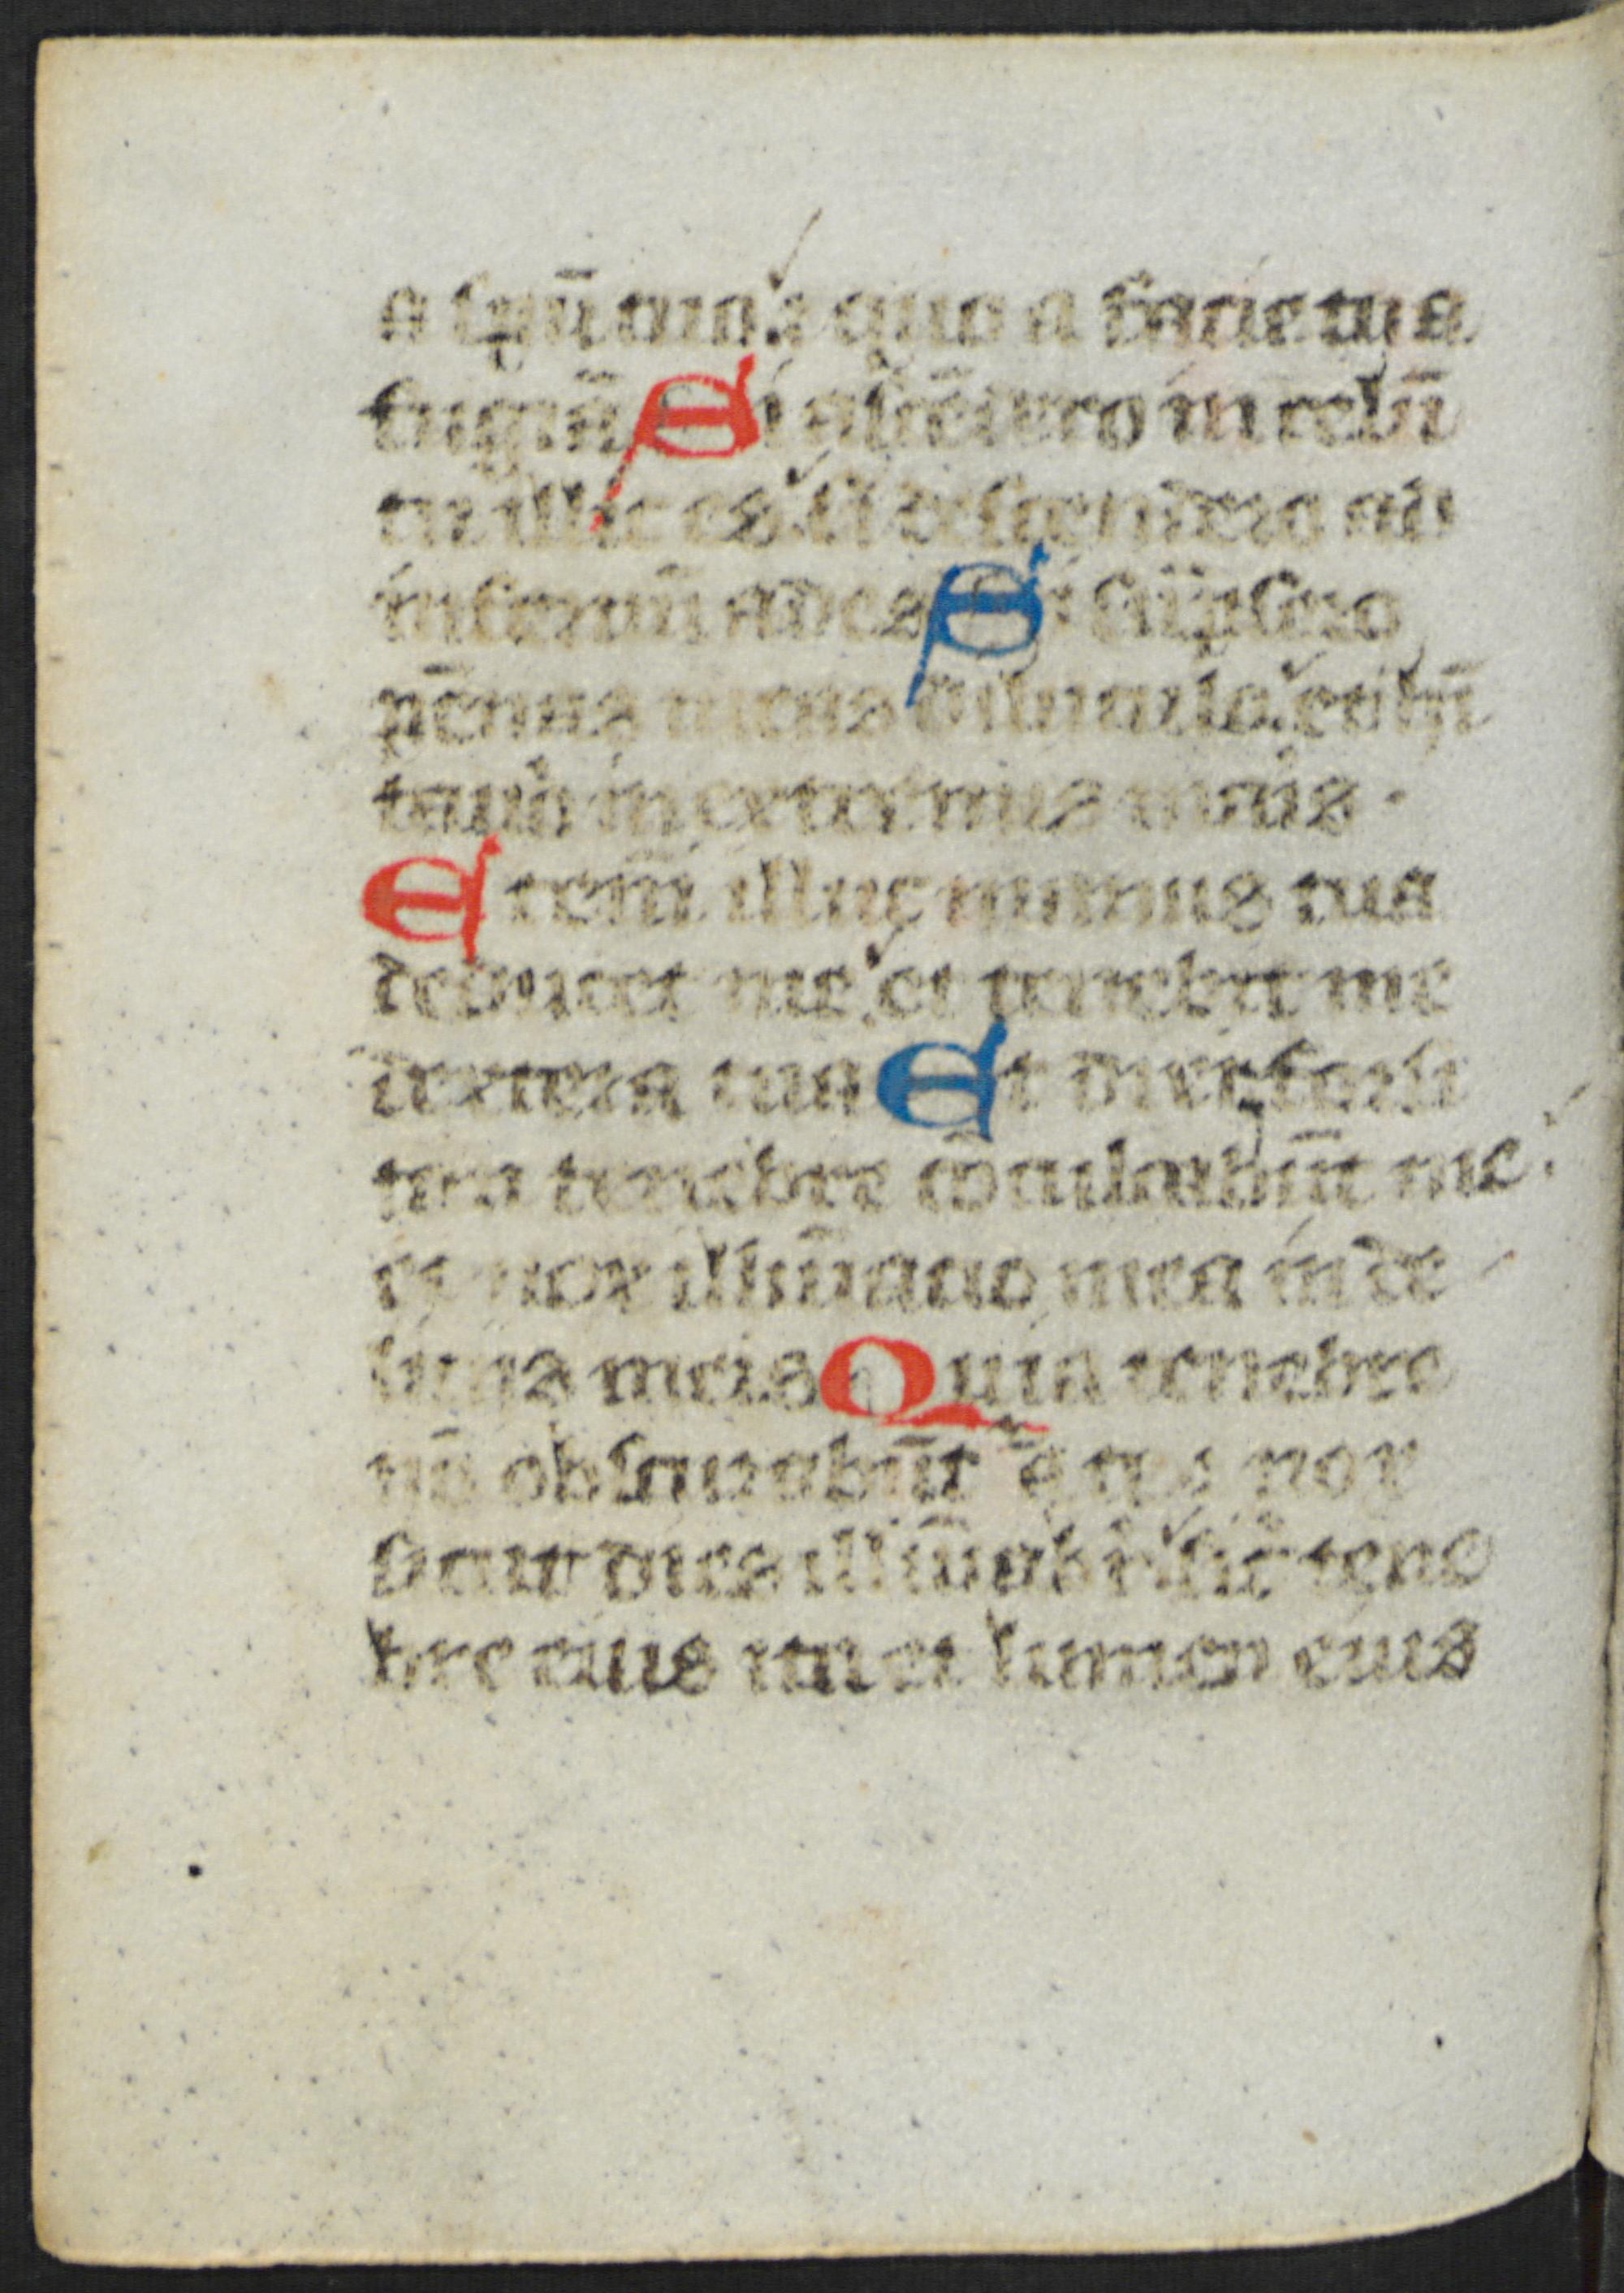 a spū tuo: ⁊ quo a facie tua
fugiā Si ascēdero in celū
tu illic es si descendero ad
infernū ades Si sūpsero
pēnas meas diluculo et hītauero
in extremis maris ·
Etenī illuc manus tua
deducet me et tenebit me
dextera tua Et dixi forsi
tan tenebre cōculcabūt me:
et nox illūinatio mea in de
liciis meis Quia tenebre
nō obscurabūt a te ⁊ nox
sicut dies illūīabit sic tene
bre eius ita et lumen eius